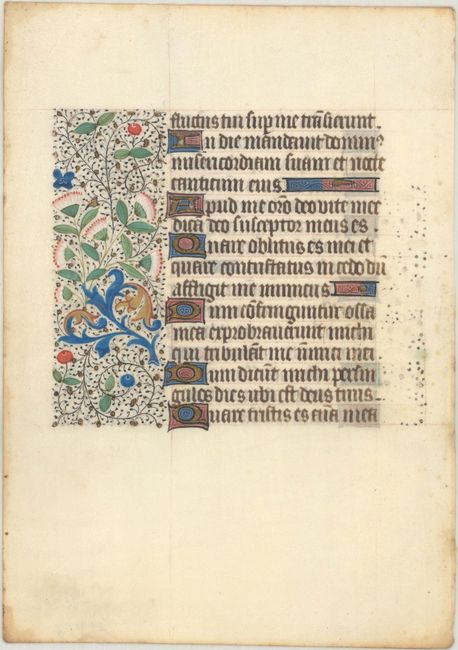 fluctus tui sup me trāsierunt.
In die mandavit domin⁹
misericordiam suam et nocte
canticum eius
Apud me orō deo vite mee
dicā deo susceptor meus es.
Quare oblitus es mei et
quare contristatus incedo dū
affligit me inimicus
Dum cōfringuntur ossa
mea exprobraverunt michi
qui tribulāt me inimici mei.
Dum dicūt michi persin
gulos dies ubi est deus tuus
Quare tristis es aīa mea